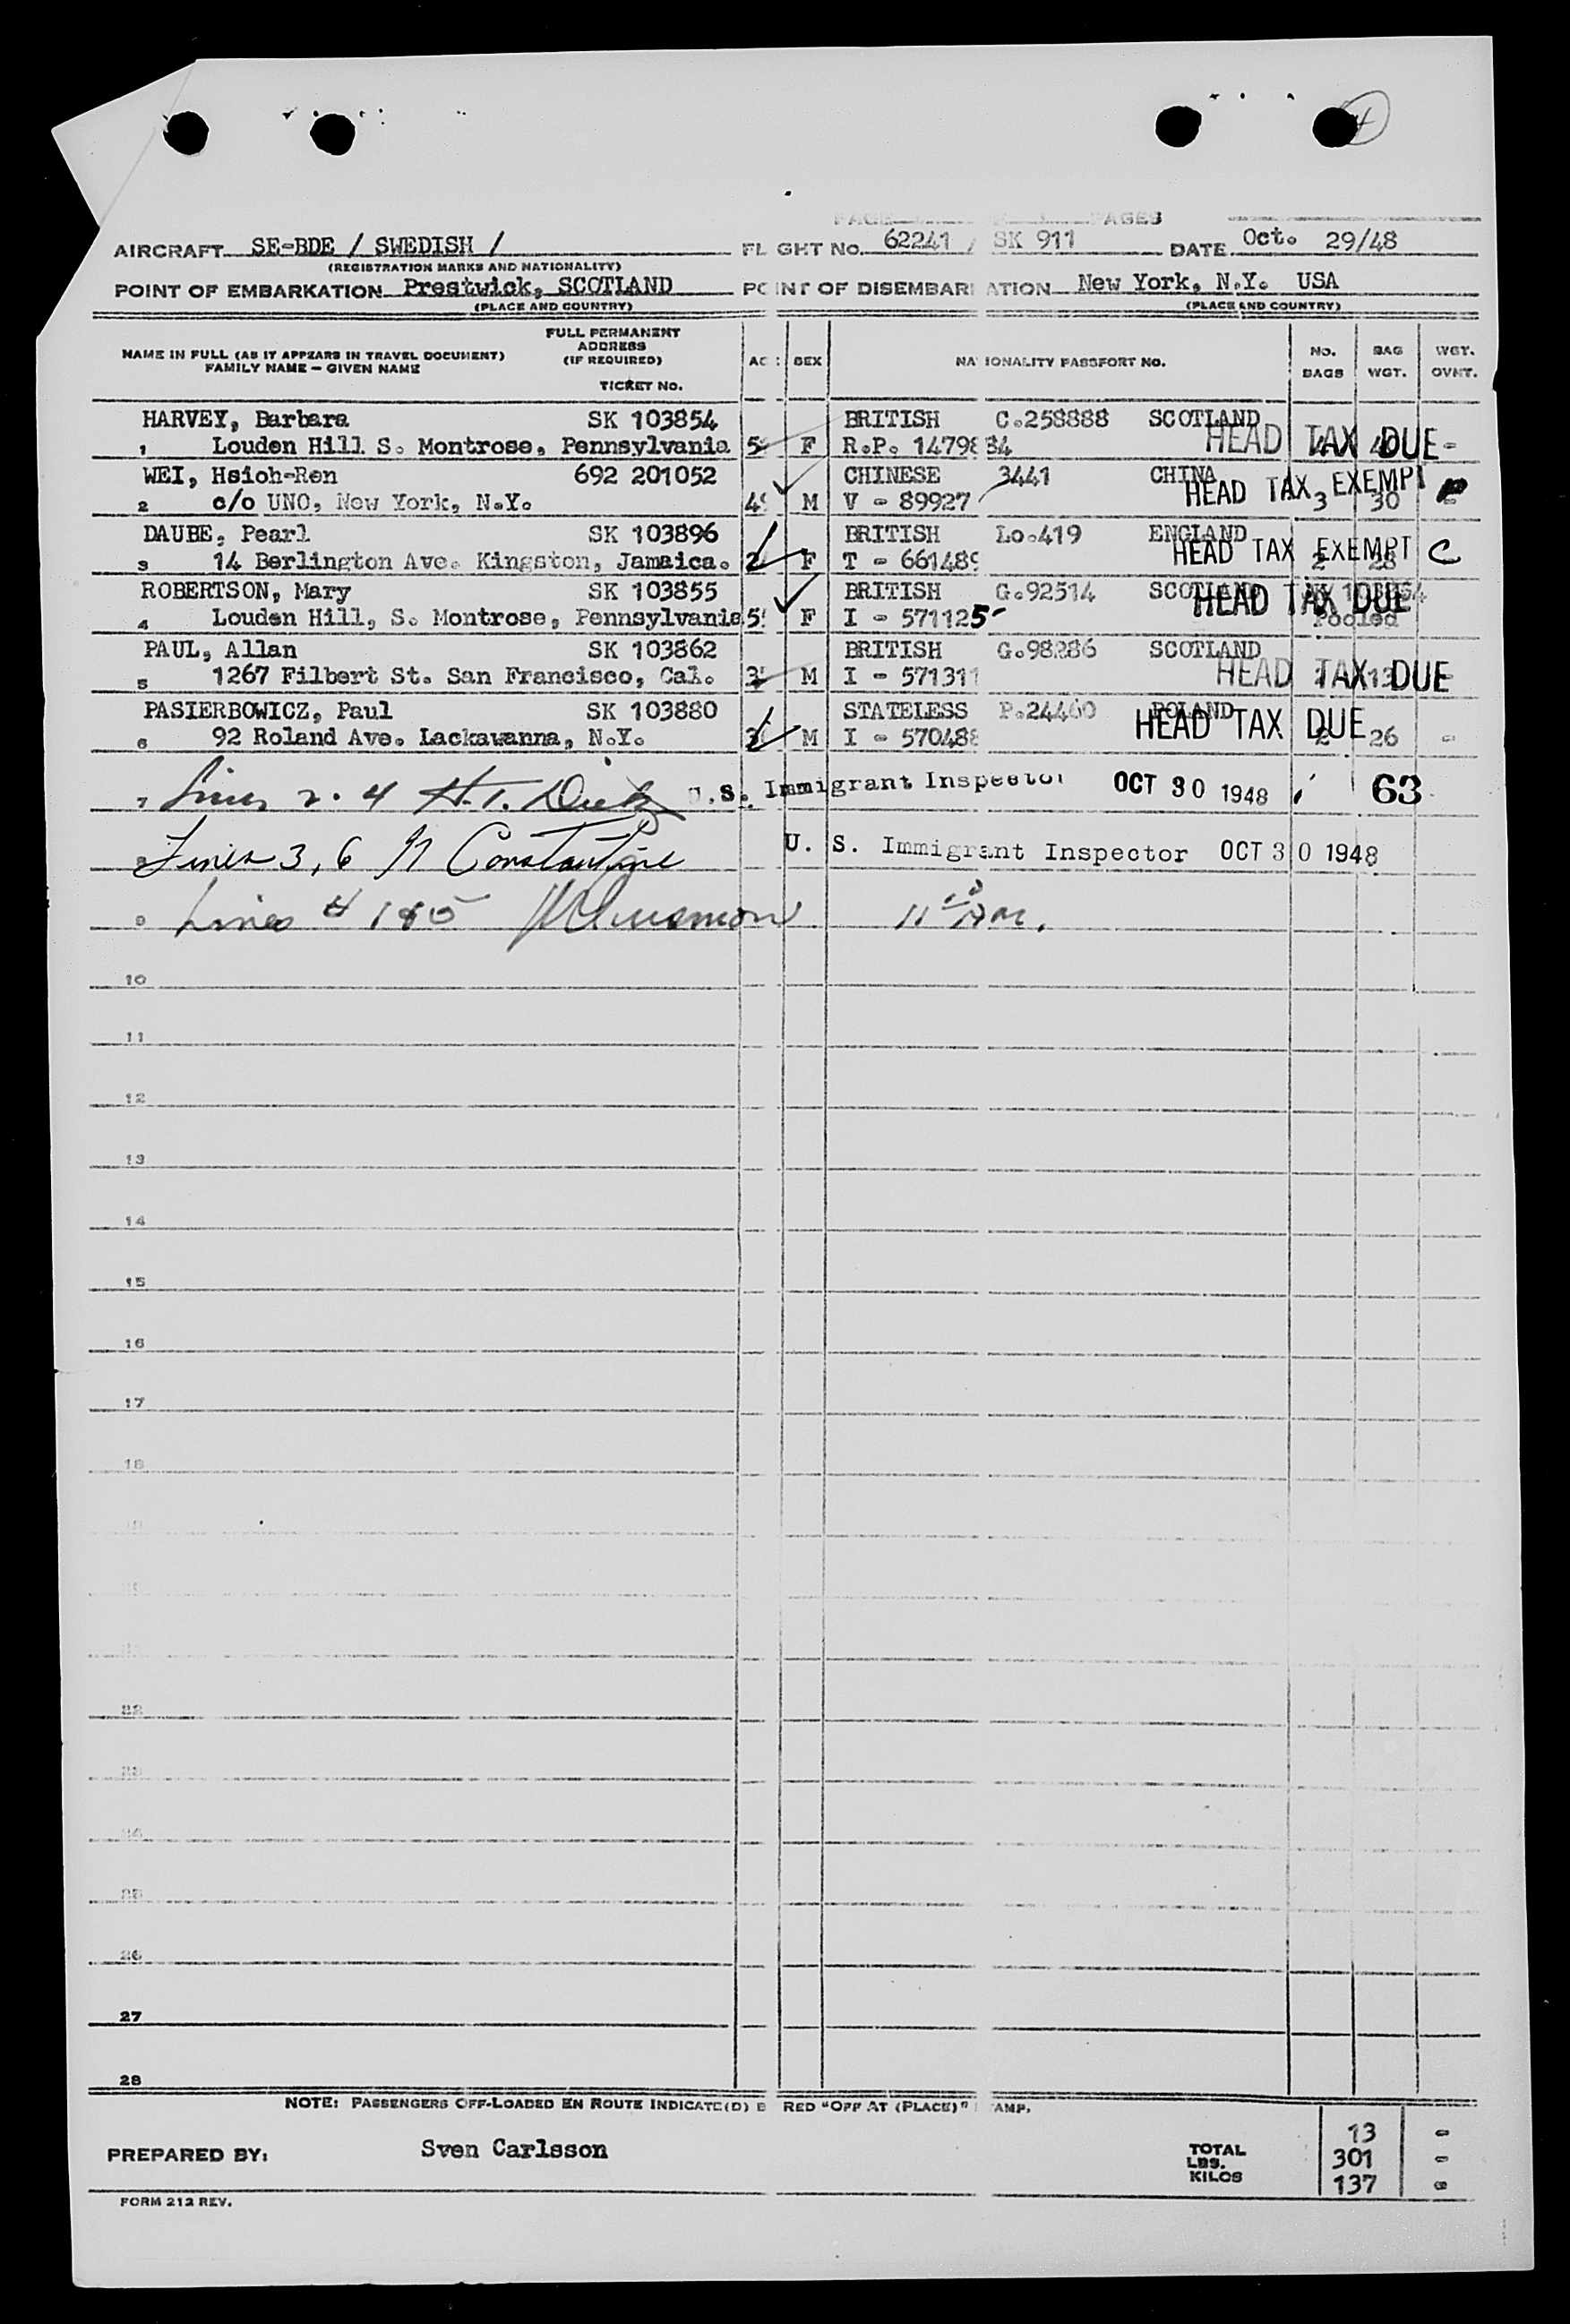 PAGES
AIRCRAFT SE-BDE / SWEDISH / FLIGHT No. 62241 / SK 911 DATE Oct. 29/48
(REGISTRATION MARKS AND NATIONALITY)
POINT OF EMBARKATION Prestwick, SCOTLAND POINT OF DISEMBARKATION New York, N.Y. USA
(PLACE AND COUNTRY) (PLACE AND COUNTRY)
NAME IN FULL (AS IT APPEARS IN TRAVEL DOCUMENT) FAMILY NAME - GIVEN NAME FULL PERMANENT ADDRESS (IF REQUIRED) TICKET No. AGE SEX NATIONALITY PASSPORT NO. No. BAGS BAG WGT. WGT. OVWT.
HARVEY, Barbara SK 103854 BRITISH C.258888 SCOTLAND
1 Louden Hill S. Montrose, Pennsylvania F R.P. 1479834 HEAD TAX DUE -
WEI, Hsioh-Ren 692 201052 CHINESE 3441 CHINA
2 c/o UNO, New York, N.Y. M V - 89927 HEAD TAX EXEMPT 3 30
DAUBE, Pearl SK 103896 BRITISH Lo.419 ENGLAND
3 14 Berlington Ave. Kingston, Jamaica. F T - 661489 HEAD TAX EXEMPT 2 28 C
ROBERTSON, Mary SK 103855 BRITISH G.92514 SCOTLAND
4 Louden Hill, S. Montrose, Pennsylvania F I - 571125 HEAD TAX DUE Pooled
PAUL, Allan SK 103862 BRITISH G.98286 SCOTLAND
5 1267 Filbert St. San Francisco, Cal. M I - 571311 HEAD TAX DUE
PASIERBOWICZ, Paul SK 103880 STATELESS P.24460 POLAND
6 92 Roland Ave. Lackawanna, N.Y. M I - 570488 HEAD TAX DUE 2 26 -
7 Lines 2. 4 H.T. U.S. Immigrant Inspector OCT 30 1948 63
8 Lines 3, 6 Constantine U. S. Immigrant Inspector OCT 30 1948
9 Lines # 1&5
10
11
12
13
14
15
16
17
18
22
23
24
25
26
27
28
NOTE: PASSENGERS OFF-LOADED EN ROUTE INDICATE(D) B RED "OFF AT (PLACE)" AMP.
13 -
PREPARED BY: Sven Carlsson TOTAL LBS. 301 -
KILOS 137 -
FORM 212 REV.